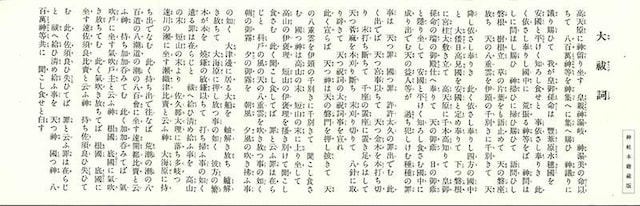 大祓詞
神社本廳藏版
高天原に神留り坐す 皇親神漏岐 神漏美の命以
て 八百萬神等を神集へに集へ賜ひ 神議りに
議り賜ひて 我が皇御孫命は 豐葦原水穗國を
安國と平けく知ろし食せと 事依さし奉りき 此
く依さし奉りし國中に 荒振る神等をば 神問は
しに問はし賜ひ 神掃ひに掃ひ賜ひて 語問ひし
磐根 樹根立 草の片葉をも語止めて 天の磐座
放ち 天の八重雲を伊頭の千別きに千別きて 天
降し依さし奉りき 此く依さし奉りし四方の國中
と 大倭日高見國を安國と定め奉りて 下つ磐根
に宮柱太敷き立て 高天原に千木高知りて 皇御
孫命の瑞の御殿仕へ奉りて 天の御蔭 日の御蔭
と隱り坐して 安國と平けく知ろし食さむ國中に
成り出でむ天の益人等が 過ち犯しけむ種種の罪
事は 天つ罪 國つ罪 許許太久の罪出でむ 此く
出でば 天つ宮事以ちて 天つ金木を本打ち切
り 末打ち斷ちて 千座の置座に置き足らはして
天つ菅麻を本刈り斷ち 末刈り切りて 八針に取
り辟きて 天つ祝詞の太祝詞事を宣れ
此く宣らば 天つ神は天の磐門を押し披きて 天
の八重雲を伊頭の千別きに千別きて 聞こし食さ
む 國つ神は高山の末 短山の末に上り坐して
高山の伊褒理 短山の伊褒理を搔き別けて聞こし
食さむ 此く聞こし食してば 罪と云ふ罪は在ら
じと 科戸の風の天の八重雲を吹き放つ事の如く
朝の御霧 夕の御霧を 朝風 夕風の吹き拂ふ事
の如く 大津邊に居る大船を 舳解き放ち 艫解
き放ちて 大海原に押し放つ事の如く 彼方の繁
木が本を 燒鎌の敏鎌以ちて 打ち掃ふ事の如く
遺る罪は在らじと 祓へ給ひ淸め給ふ事を 高山
の末 短山の末より 佐久那太理に落ち多岐つ
速川の瀨に坐す瀨織津比賣と云ふ神 大海原に持
ち出でなむ 此く持ち出で往なば 荒潮の潮の八
百道の八潮道の潮の八百會に坐す速開都比賣と云
ふ神 持ち加加呑みてむ 此く加加呑みてば 氣吹
戸に坐す氣吹戸主と云ふ神 根國 底國に氣吹
き放ちてむ 此く氣吹き放ちてば 根國 底國に
坐す速佐須良比賣と云ふ神 持ち佐須良ひ失ひて
む 此く佐須良ひ失ひてば 罪と云ふ罪は在らじ
と 祓へ給ひ淸め給ふ事を 天つ神 國つ神 八
百萬神等共に 聞こし食せと白す